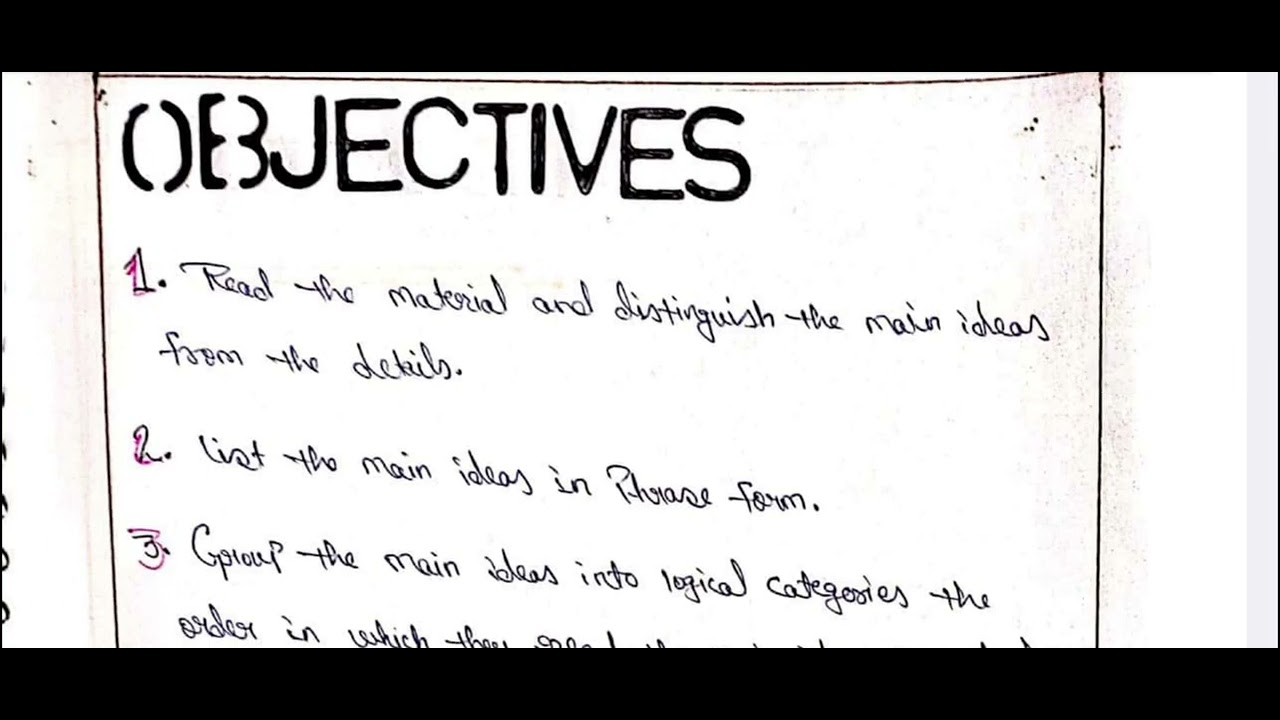 OBJECTIVES
1. Read the material and distinguish the main ideas
from the details.
2. List the main ideas in Phrase form.
3. Group the main ideas into logical categories the
order in which they